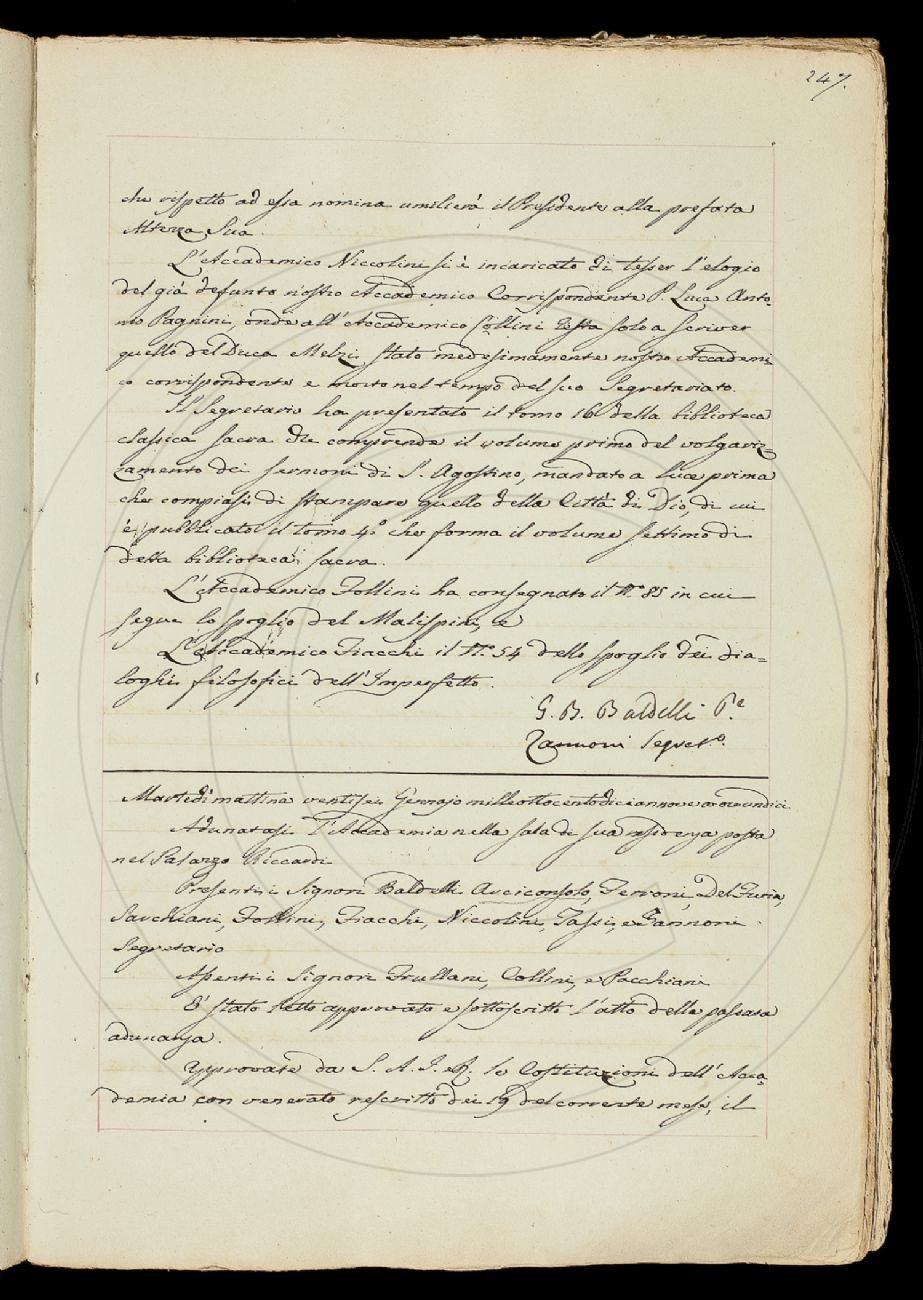 247.
che rispetto ad essa nomina umilierà il Presidente alla prefata
Altezza Sua.
L'Accademico Niccolini si è incaricato di tesser l'elogio
del già defunto nostro Accademico Corrispondente P. Luca Anto-
nio Pagnini, onde all'Accademico Collini resta solo a scriver
quello del Duca Melzi stato medesimamente nostro Accademi-
co corrispondente e morto nel tempo del suo Segretariato.
Il Segretario ha presentato il tomo 16 della biblioteca
classica sacra che comprende il volume primo del volgariz-
zamento dei sermoni di S. Agostino, mandato a luce prima
che compiasi di stampare quello della Città di Dio, di cui
è pubblicato il tomo 4.° che forma il volume settimo di
detta biblioteca sacra.
L'Accademico Follini ha consegnato il N.° 85 in cui
segue lo spoglio del Malispini, e
L'Accademico Fiacchi il N.° 54 dello spoglio dei dia-
loghi filosofici dell'Imperfetto.
G. B. Baldelli P.e
Zannoni Segret.o
Martedì mattina ventisei Gennajo milleottocentodiciannove a ore undici
Adunatasi l'Accademia nella sala di sua residenza posta
nel Palazzo Riccardi
Presenti i Signori Baldelli Arciconsolo, Ferroni, Del Furia,
Sarchiani, Follini, Fiacchi, Niccolini, Tassi, e Zannoni
Segretario
Assenti i Signori Frullani, Collini, e Pacchiani
È stato letto approvato e sottoscritto l'atto della passata
adunanza.
Approvate da S. A. I. e R. le Costituzioni dell'Acca-
demia con venerato rescritto dei 19 del corrente mese, il